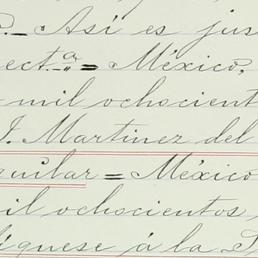 Así es jus
ect.a = México,
mil ochocient
J. Martinez del
guilar = México
il ochocientos
íquese á la S